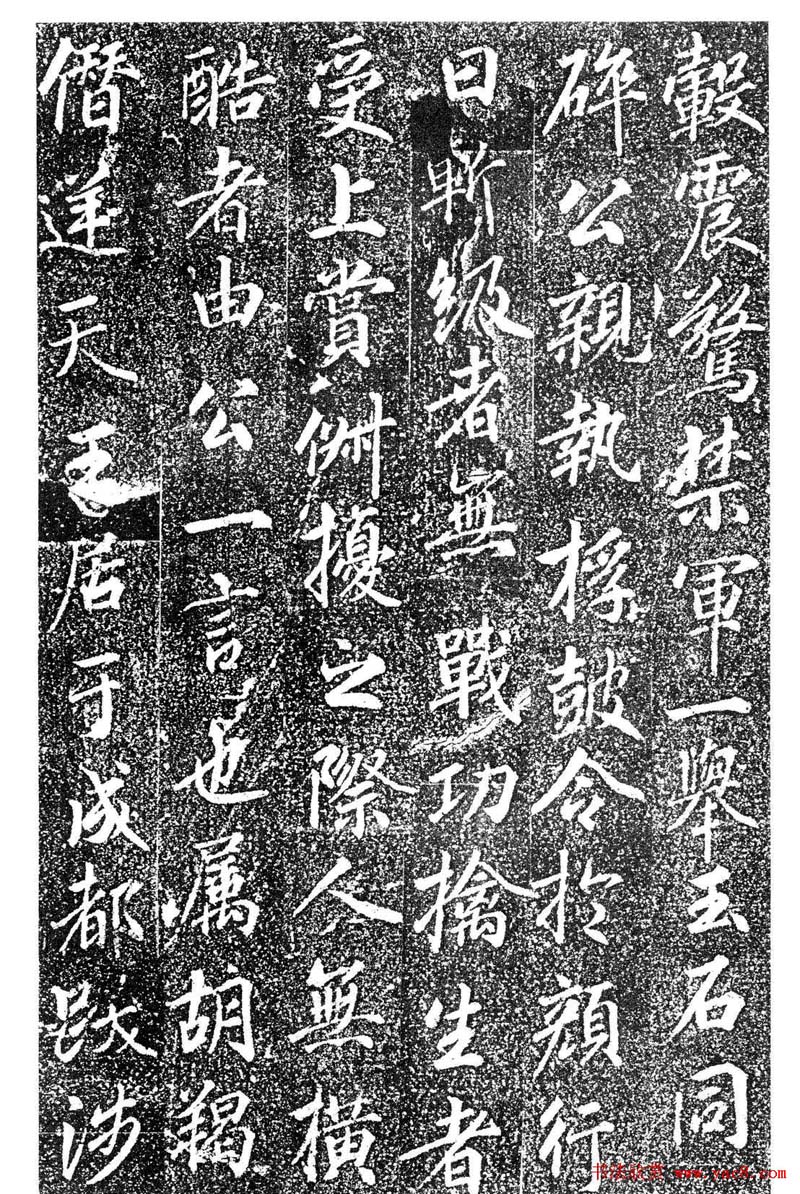 轂震驚禁軍一舉玉石同
碎公親執桴皷令於顔行
曰斬級者無戰功擒生者
受上賞俶擾之際人無橫
酷者由公一言也属胡羯
僭逆天王居于成都跋涉
书法欣赏 www.yac8.com